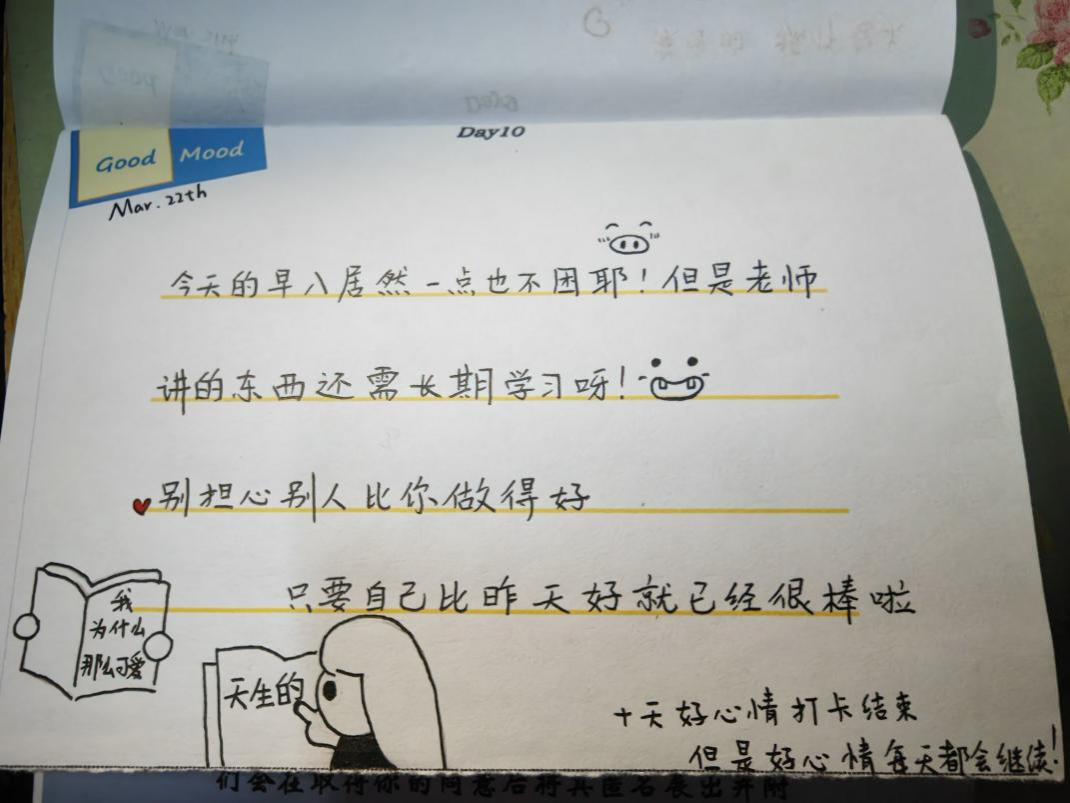 Day10
Good Mood
Mar. 22th
今天的早八居然一点也不困耶！但是老师
讲的东西还需长期学习呀！
别担心别人比你做得好
只要自己比昨天好就已经很棒啦
我
为什么
那么可爱
天生的
十天好心情打卡结束
但是好心情每天都会继续！
们会在取得你的同意后将其匿名展出并附